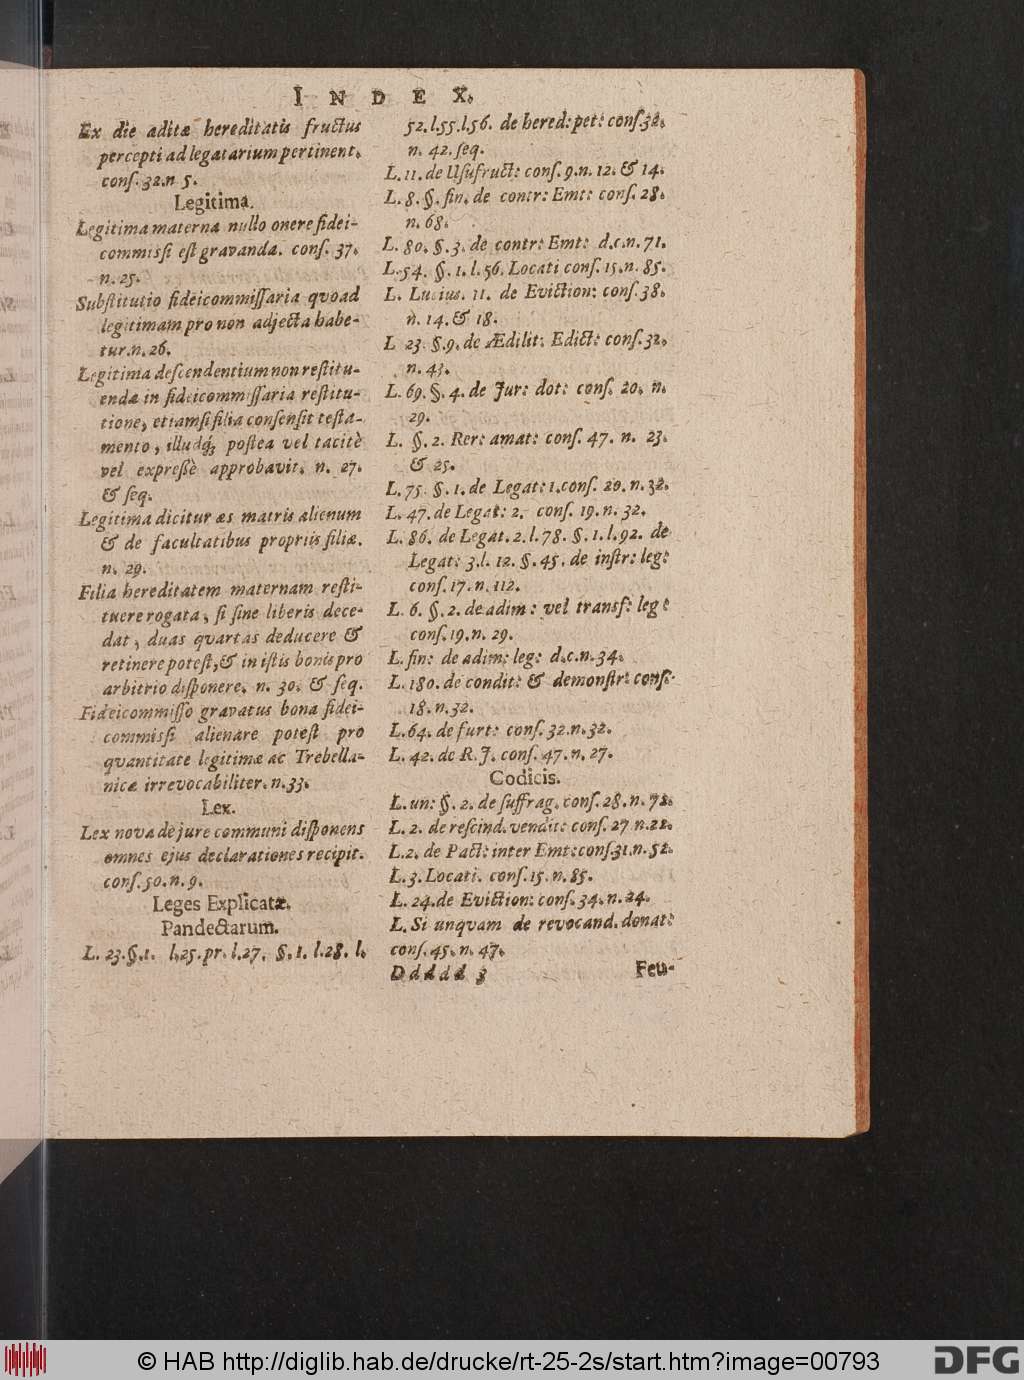 INDEX.
Ex die aditæ hereditatis fructus
percepti ad legatarium pertinent.
conſ. 32. n 5.
Legitima.
Legitima materna nullo onere fidei-
commiſſi eſt gravanda. conſ. 37.
n. 25.
Subſtitutio fideicommiſſaria quoad
legitimam pro non adjecta habe-
tur. n. 26.
Legitima deſcendentium non reſtitu-
endæ in fideicommiſſaria reſtitu-
tione, etiamſi filia conſenſit teſta-
mento, illudq́; poſtea vel tacitè
vel expreſſè approbavit. n. 27.
& ſeq.
Legitima dicitur æs matris alienum
& de facultatibus propriis filiæ.
n. 29.
Filia hereditatem maternam reſti-
tuere rogata, ſi ſine liberis dece-
dat, duas quartas deducere &
retinere poteſt, & in iſtis bonis pro
arbitrio diſponere. n. 30. & ſeq.
Fideicommiſſo gravatus bona fidei-
commiſſi alienare poteſt pro
quantitate legitimæ ac Trebella-
nicæ irrevocabiliter. n. 33.
Lex.
Lex nova de jure communi diſponens
omnes ejus declarationes recipit.
conſ. 50. n. 9.
Leges Explicatæ.
Pandectarum.
L. 23. §. 1. l. 25. pr. l. 27. §. 1. l. 28. l.
52. l. 55. l. 56. de hered: pet: conſ. 32.
n. 42. ſeq.
L. 11. de Uſufruct: conſ. 9. n. 12. & 14.
L. 8. §. fin. de contr: Emt: conſ. 28.
n. 68.
L. 80. §. 3. de contr: Emt: d. c. n. 71.
L. 54. §. 1. l. 56. Locati conſ. 15. n. 85.
L. Lucius. 11. de Eviction: conſ. 38.
n. 14. & 18.
L 23. §. 9. de Ædilit: Edict: conſ. 32.
n. 43.
L. 69. §. 4. de Jur: dot: conſ. 20. n.
29.
L. §. 2. Rer: amat: conſ. 47. n. 23.
& 25.
L. 75. §. 1. de Legat: 1. conſ. 20. n. 32.
L. 47. de Legat: 2. conſ. 19. n. 32.
L. 86. de Legat. 2. l. 78. §. 1. l. 92. de
Legat: 3. l. 12. §. 45. de inſtr: leg:
conſ. 17. n. 112.
L. 6. §. 2. de adim: vel transf: leg:
conſ. 19. n. 29.
L. fin: de adim: leg: d. c. n. 34.
L. 180. de condit: & demonſtr: conſ.
18. n. 32.
L. 64. de furt: conſ. 32. n. 32.
L. 42. de R. J. conſ. 47. n. 27.
Codicis.
L. un: §. 2. de ſuffrag. conſ. 28. n. 72.
L. 2. de reſcind. vendit: conſ. 27 n. 22.
L. 2. de Pact: inter Emt: conſ 31. n. 52.
L. 3. Locati. conſ. 15. n. 85.
L. 24. de Eviction: conſ. 34. n. 24.
L. Si unquam de revocand. donat:
conſ. 45. n. 47.
Ddddd 3 Feu-
© HAB http://diglib.hab.de/drucke/rt-25-2s/start.htm?image=00793
DFG